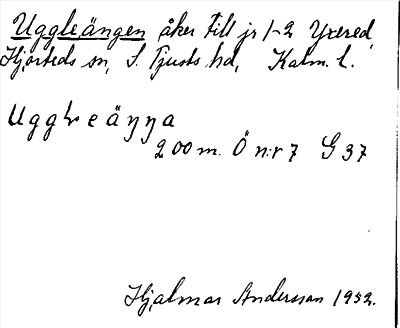 Uggleängen åker till jr 1-2 Yxered,
Hjorteds sn, S. Tjusts hd, Kalm. l.
Uggłeäŋŋa
200 m. Ö n:r 7 G 37
Hjalmar Andersson 1932.